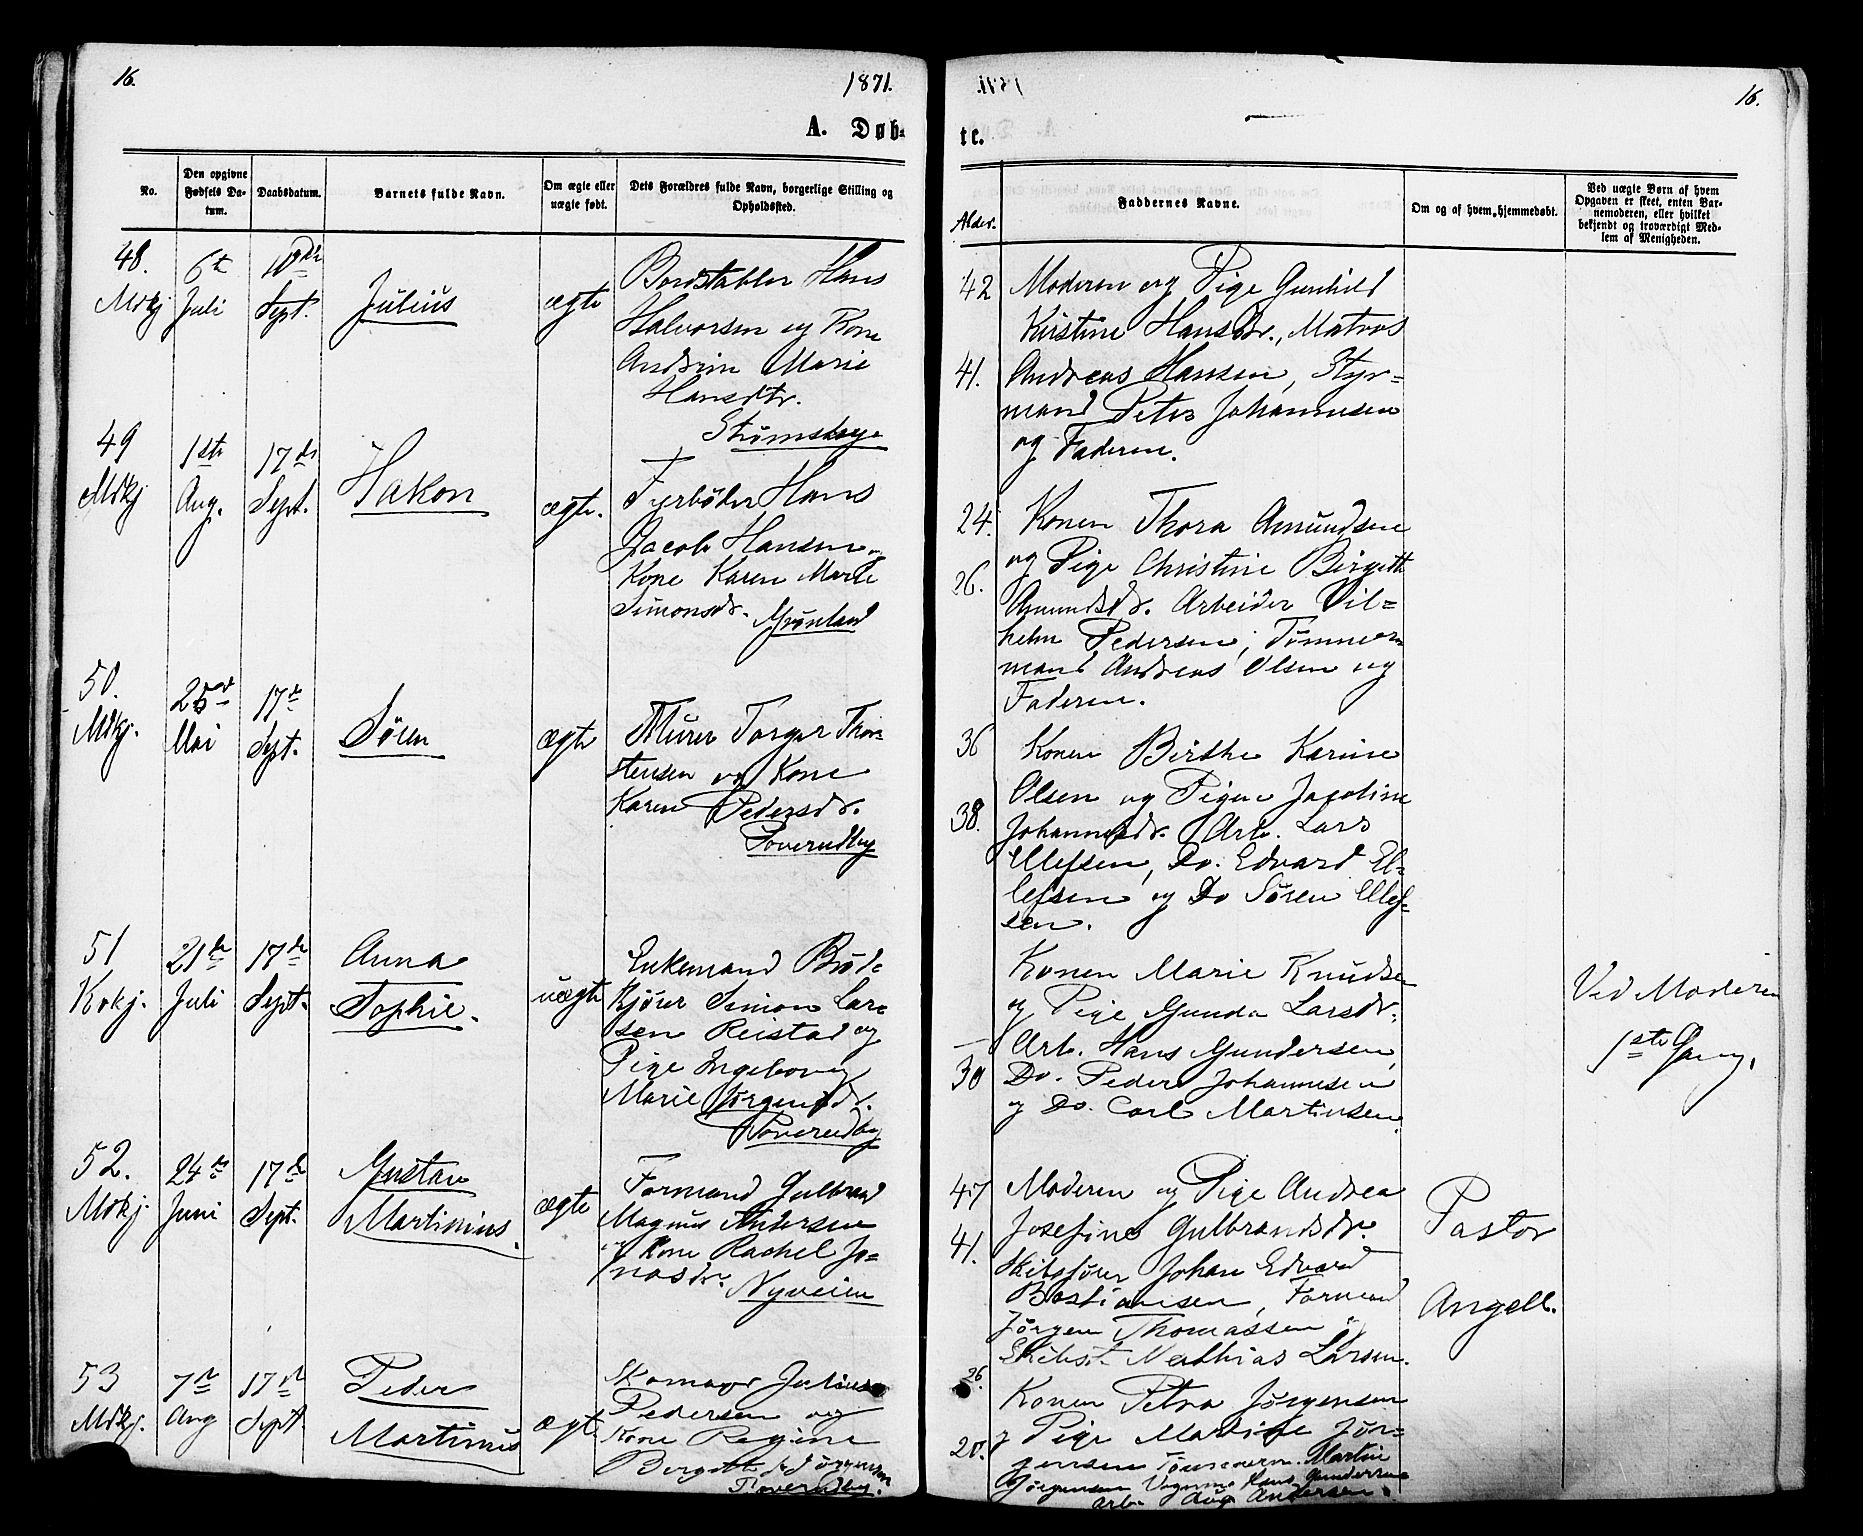 16.
1871.
A. Døb-
No.
Den opgivne Fødsels Da-
tum.
Daabsdatum.
Barnets fulde Navn.
Om ægte eller
uægte født.
Dets Forældres fulde Navn, borgerlige Stilling og
Opholdssted.
48.
Mdkj
6te
Juli
10de
Sept.
Julius
ægte
Bordstabler Hans
Halvorsen og Kone
Andrine Marie
Hansdtr.
Strømshage
49
Mdkj
1ste
Aug.
17de
Sept.
Hakon
ægte.
Fyrbøder Hans
Jacob Hansen
Kone Karen Marie
Simonsdr. Grønland
50.
Mdkj.
Mai
17de
Sept.
Søren
ægte
Murer Torger Thor-
stensen og Kone
Karen Pedersdr.
Poverudby
51
Kokj.
21de
Juli
17de
Sept.
Anna
Sophie.
uægte
Enkemand Brød-
kjører Simon Lar-
sen Reistad og
Pige Ingeborg
Marie Jørgensdr.
Poverudby
52.
Mdkj
24de
Juni
17de
Sept.
Gustav
Martinius.
ægte
Formand Gulbrand
Magnus Andersen
og Kone Rachel Jo-
nasdr. Nyveien
53
Mdkj.
7de
Aug
17de
Sept.
Peder
Martinius
ægte
Skomager Julius
Pedersen og
Kone Regine
Bergitte Jørgensen
Poverudby.
te.
16.
Alder.
Faddernes Navne.
Om og af hvem hjemmedøbt.
Ved uægte Børn af hvem
Opgaven er skeet, enten Bar-
nemoderen, eller hvilket
bekjendt og troværdigt Med-
lem af Menigheden.
42 Moderen og Pige Gunhild
Kirstine Hansdr., Matros
41. Andreas Hansen, Styr-
mand Peter Johannesen
og Faderen.
24. Konen Thora Amundsen
og Pige Christine Birgitte
26. Amundsdr. Arbeider Vil-
helm Pedersen, Tømmer-
mand Andreas Olsen og
Faderen.
36 Konen Birthe Karine
Olsen og Pigen Jacobine
38. Johannesdr. Arb. Lars
Ellefsen, Do. Edvard El-
lefsen og Do Søren Ellef-
sen.
Konen Marie Knudsen
og Pige Gunda Larsdr.
— Arb. Hans Gundersen,
30 Do. Peder Johannesen
og Do. Carl Martinsen.
Ved Moderen
1ste Gang.
47 Moderen og Pige Andrea
Josefine Gulbrandsdr.
41. Skibsfører Johan Edvard
Bastiansen, Formand
Jørgen Thomassen
Skibst. Mathias Larsen.
Pastor
Angell.
26. Konen Petra Jørgensen
og Pige Martine Jør-
20. gensen Tømmerm. Martin
Jørgensen Hans Gundersen
Arb. Aug Andersen.